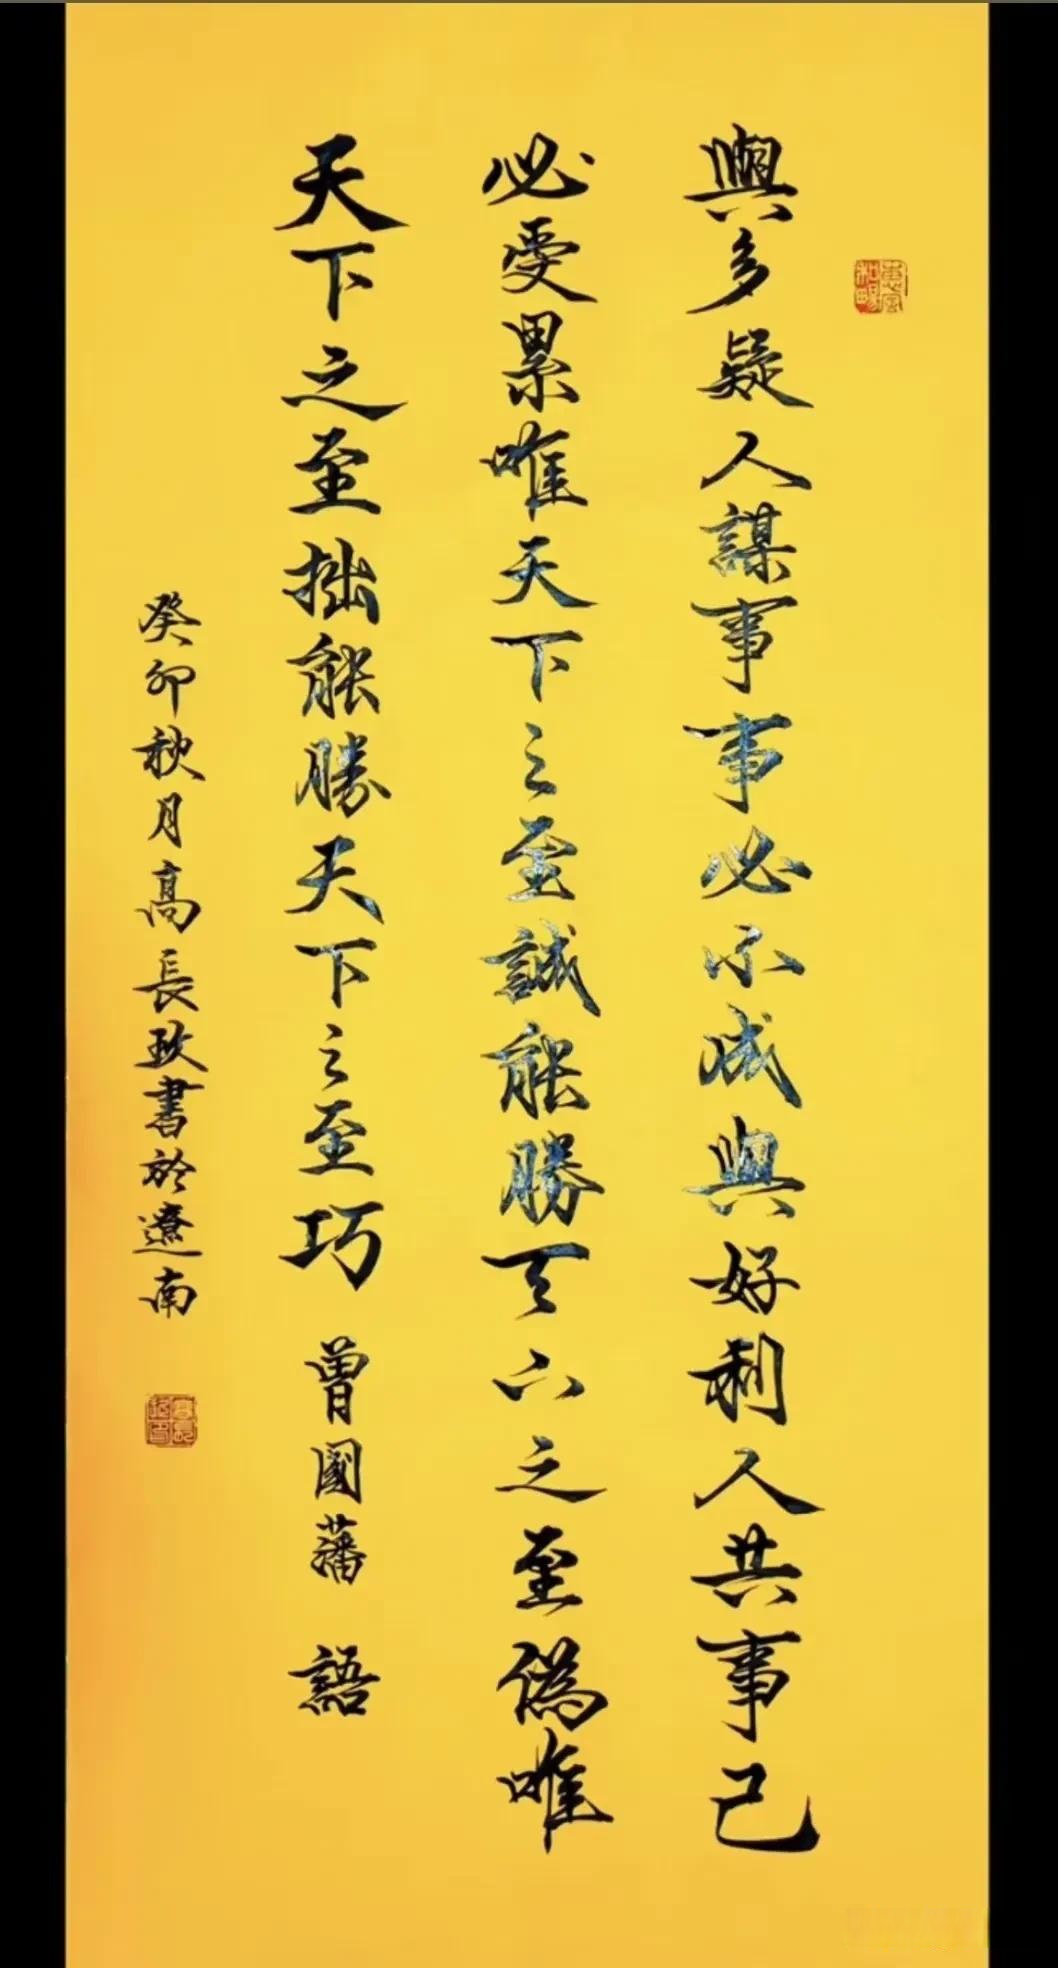 與多疑人謀事事必不成與好利人共事己
必受累唯天下之至誠能勝天下之至偽唯
天下之至拙能勝天下之至巧 曾國藩 語
癸卯秋月高長玖書於遼南
惠風和暢